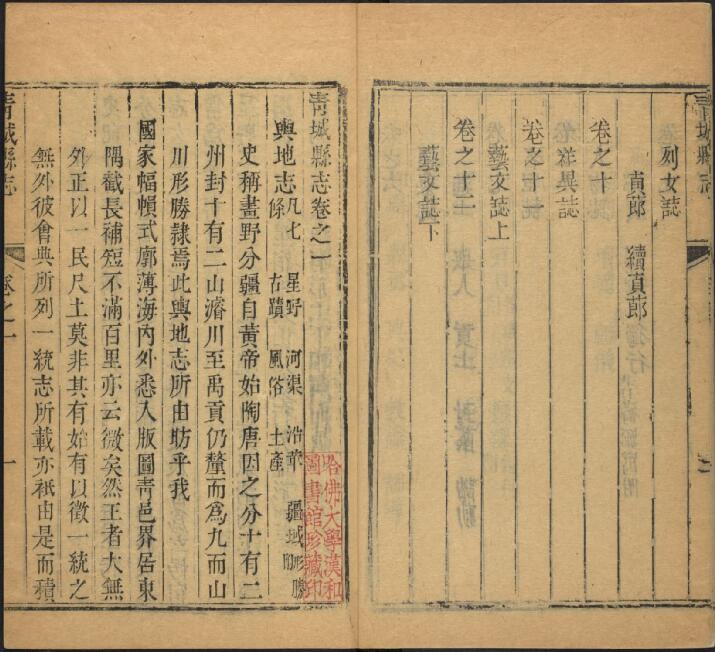 青城縣志
列女誌
貞節 續貞節
卷之十
祥異誌
卷之十一
藝文誌上
卷之十二
藝文誌下
青城縣志卷之一
輿地志凡七條 星野 河渠 沿革 疆域 形勝 古蹟 風俗 土產
史稱畫野分疆自黃帝始陶唐因之分十有二
州封十有二山濬川至禹貢仍釐而爲九而山
川形勝隸焉此輿地志所由昉乎我
國家幅幀式廓薄海內外悉入版圖青邑界居東
隅截長補短不滿百里亦云微矣然王者大無
外正以一民尺土莫非其有始有以徵一統之
無外彼會典所列一統志所載亦祇由是而積
青城縣志 卷之一 一
哈佛大學漢和
圖書館珍藏印